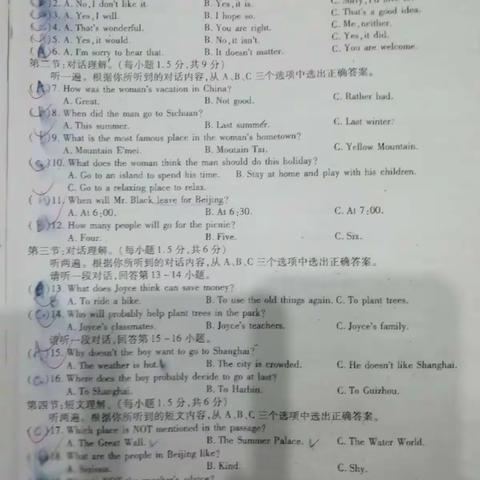 2. A. No, I don't like it. B. Yes, it is. C. Sorry,
3. A. Yes, I will. B. I hope so. C. That's a good idea.
4. A. That's wonderful. B. You are right. C. Me, neither.
5. A. Yes, it would. B. No, it isn't. C. Yes, it did.
(A)6. A. I'm sorry to hear that. B. It doesn't matter. C. You are welcome.
第二节:对话理解。(每小题1.5分,共9分)
听一遍。根据你所听到的对话内容,从A、B、C三个选项中选出正确答案。
(A)7. How was the woman's vacation in China?
A. Great. B. Not good. C. Rather bad.
( )8. When did the man go to Sichuan?
A. This summer. B. Last summer. C. Last winter.
( )9. What is the most famous place in the woman's hometown?
A. Mountain E'mei. B. Moutain Tai. C. Yellow Mountain.
(C)10. What does the woman think the man should do this holiday?
A. Go to an island to spend his time. B. Stay at home and play with his children.
C. Go to a relaxing place to relax.
( )11. When will Mr. Black leave for Beijing?
A. At 6:00. B. At 6:30. C. At 7:00.
(B)12. How many people will go for the picnic?
A. Four. B. Five. C. Six.
第三节:对话理解。(每小题1.5分,共6分)
听两遍。根据你所听到的对话内容,从A、B、C三个选项中选出正确答案。
请听一段对话,回答第13-14小题。
( )13. What does Joyce think can save money?
A. To ride a bike. B. To use the old things again. C. To plant trees.
(C)14. Who will probably help plant trees in the park?
A. Joyce's classmates. B. Joyce's teachers. C. Joyce's family.
请听一段对话,回答第15-16小题。
(A)15. Why doesn't the boy want to go to Shanghai?
A. The weather is hot. B. The city is crowded. C. He doesn't like Shanghai.
(C)16. Where does the boy probably decide to go at last?
A. To Shanghai. B. To Harbin. C. To Guizhou.
第四节:短文理解。(每小题1.5分,共6分)
听两遍。根据你所听到的短文内容,从A、B、C三个选项中选出正确答案。
(C)17. Which place is NOT mentioned in the passage?
A. The Great Wall. B. The Summer Palace. C. The Water World.
18. What are the people in Beijing like?
A. Serious. B. Kind. C. Shy.